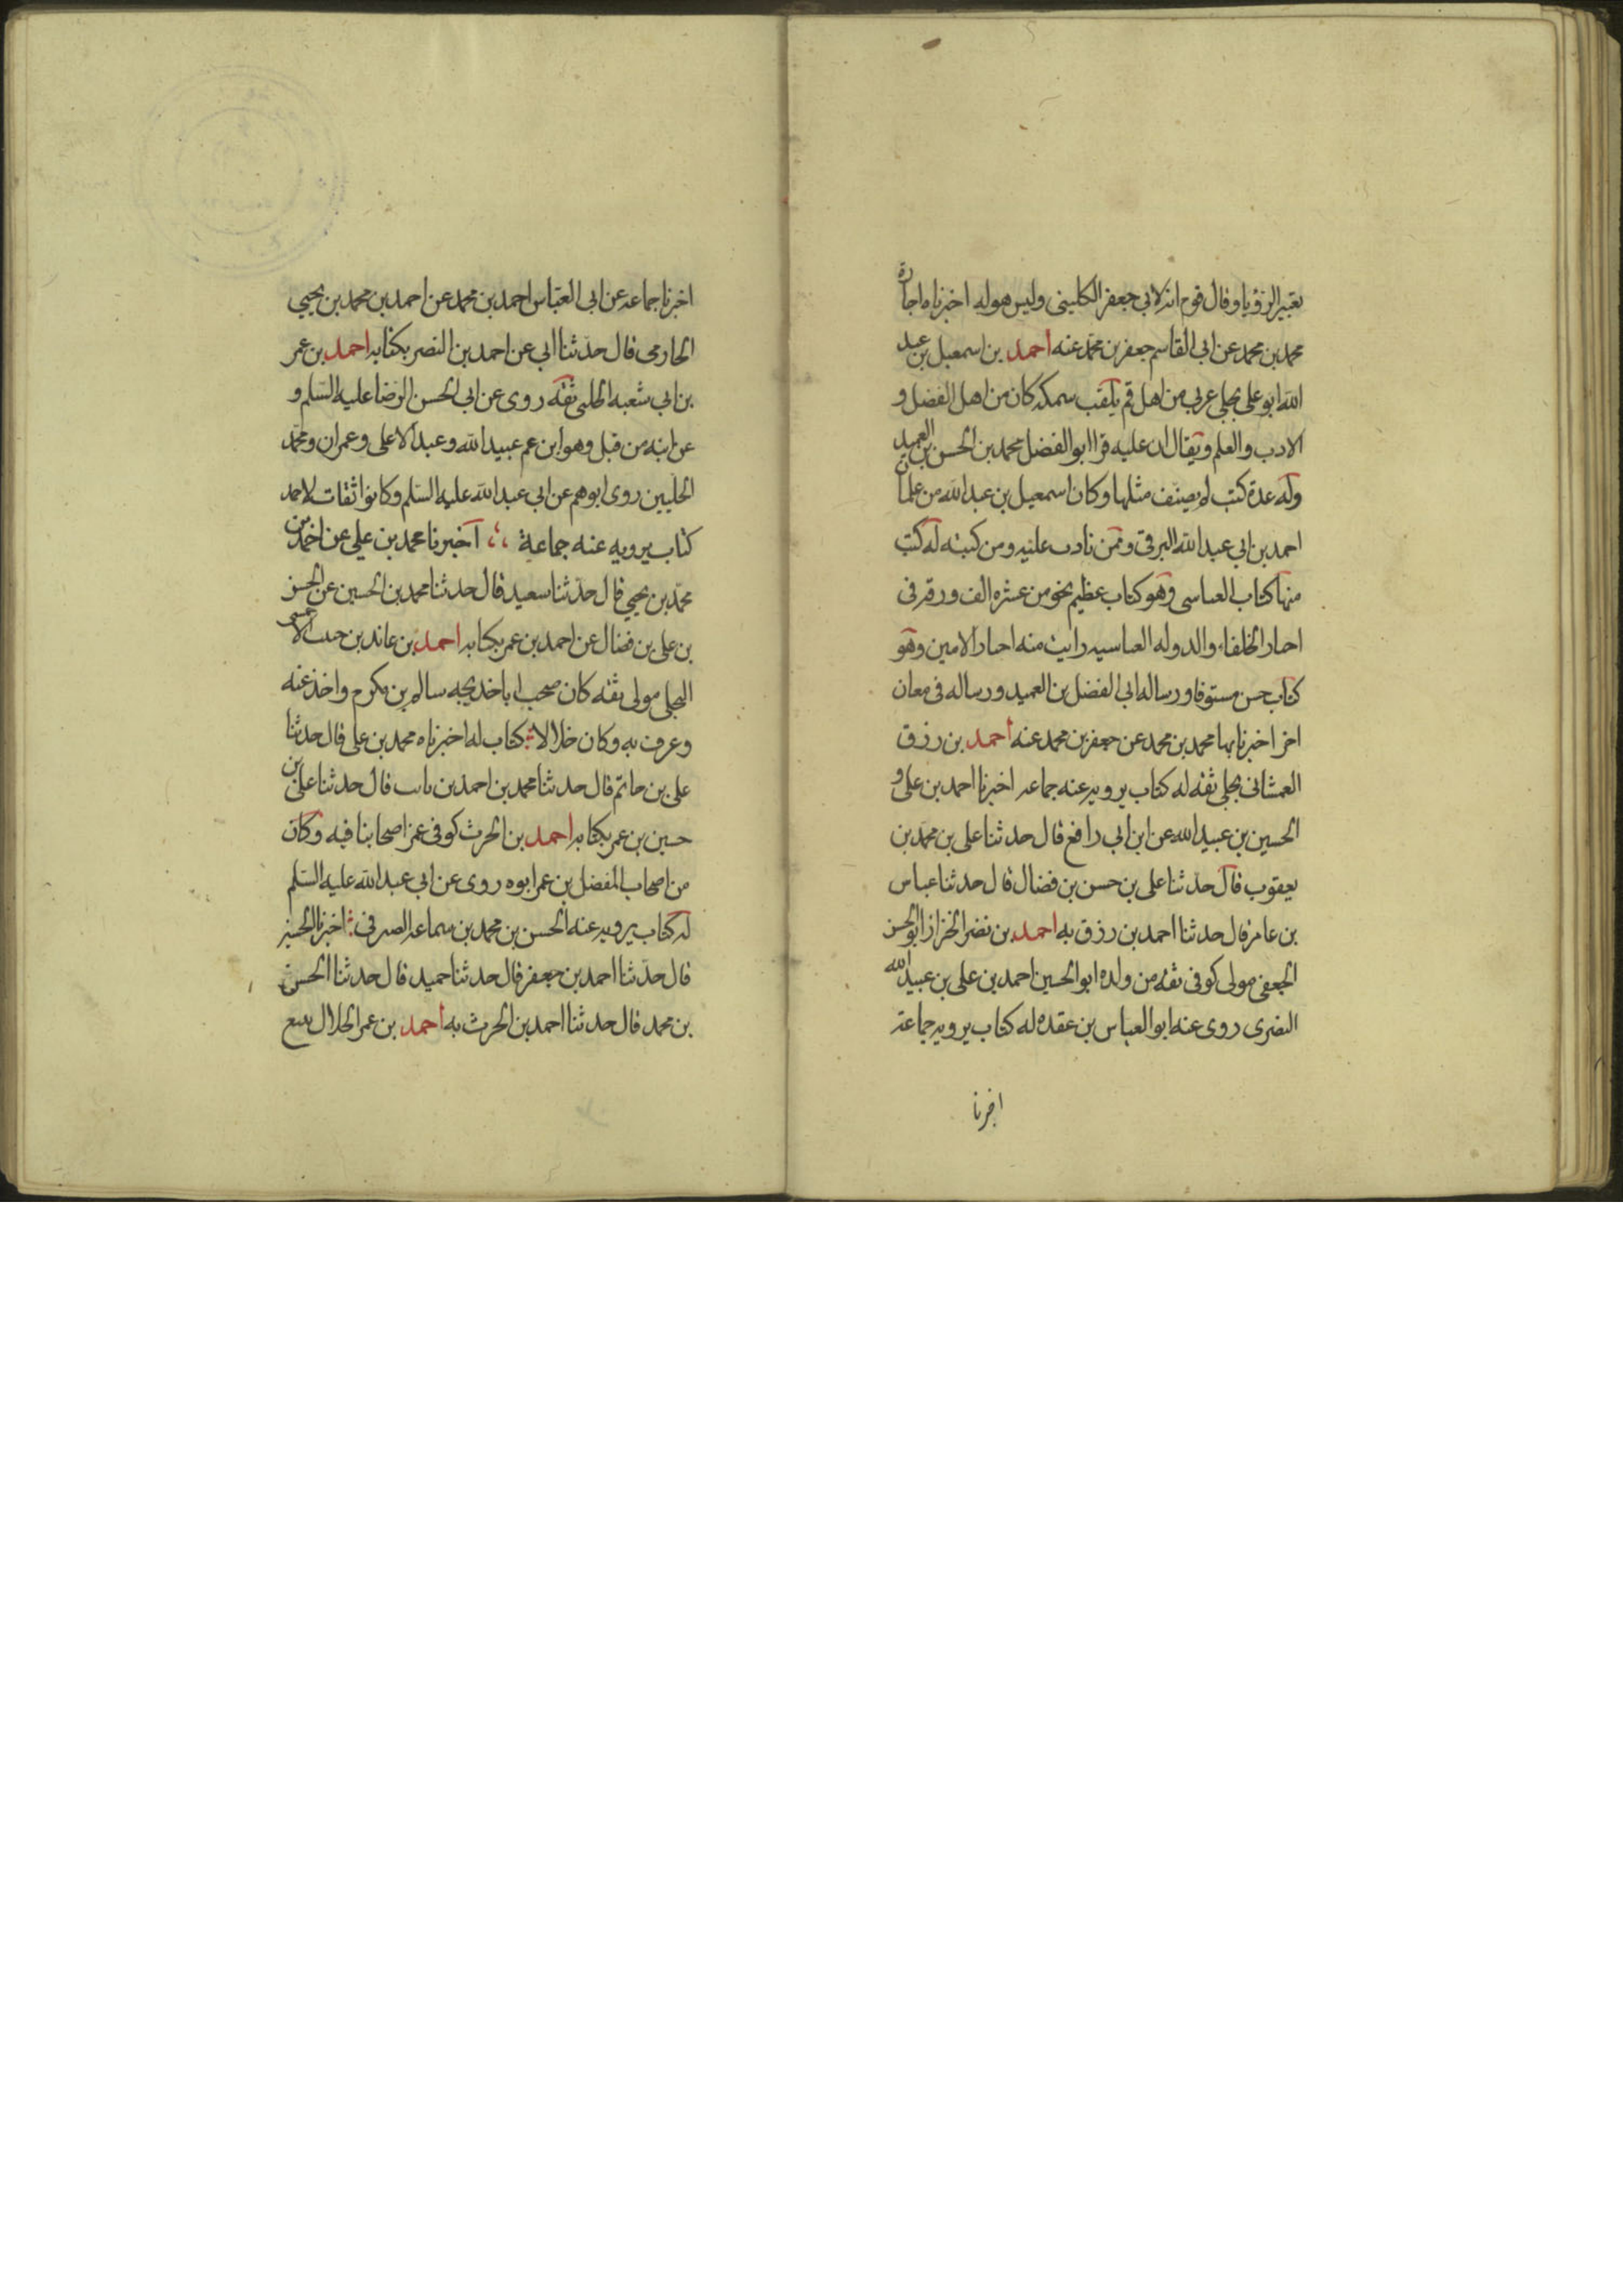 تعبير الرؤيا وقال قوم انه لابى جعفر الكلينى وليس هو له اخبرناه اجازة
محمد بن محمد عن ابى القاسم جعفر بن محمد عنه احمد بن اسمعيل بن عبد
الله ابو على بجلى عربى من اهل قم يلقب سمكه كان من اهل الفضل و
الادب والعلم ويقال ان عليه قرا ابو الفضل محمد بن الحسن بن العميد
وله عدة كتب لم يصنف مثلها وكان اسمعيل بن عبد الله من غلمان
احمد بن ابى عبد الله البرقى وممن تادب عليه ومن كتبه له كتب
منها كتاب العباسى وهو كتاب عظيم نحو من عشره الف ورقه فى
اخبار الخلفاء والدوله العباسيه رايت منه اخبار الامين وهو
كتاب حسن مستوفا ورساله ابى الفضل بن العميد ورساله فى معان
اخر اخبرنا بها محمد بن محمد عن جعفر بن محمد عنه احمد بن رزق
العمشانى بجلى ثقه له كتاب يرويه عنه جماعه اخبرنا احمد بن على و
الحسين بن عبيد الله عن ابن ابى رافع قال حدثنا على بن محمد بن
يعقوب قال حدثنا على بن حسن بن فضال قال حدثنا عباس
بن عامر قال حدثنا احمد بن رزق به احمد بن نضر الخزاز ابو الحسن
الجعفى مولى كوفى ثقه من ولده ابو الحسين احمد بن على بن عبيد الله
النضرى روى عنه ابو العباس بن عقده له كتاب يرويه جماعة
اخبرنا
اخبرنا جماعه عن ابى العباس احمد بن محمد عن احمد بن محمد بن يحيى
الحازمى قال حدثنا ابى عن احمد بن النضر بكتابه احمد بن عمر
بن ابى شعبه الحلبى ثقه روى عن ابى الحسن الرضا عليه السلم و
عن ابيه من قبل وهو ابن عم عبيد الله وعبد الاعلى وعمران ومحمد
الحلبيين روى ابوهم عن ابى عبد الله عليه السلم وكانوا ثقات لاحمد
كتاب يرويه عنه جماعة اخبرنا محمد بن على عن احمد بن
محمد بن يحيى قال حدثنا سعيد قال حدثنا محمد بن الحسين عن الحسن
بن على بن فضال عن احمد بن عمر بكتابه احمد بن عائذ بن حبيب الاحمسى
البجلى مولى ثقه كان صحب ابا خديجه سالم بن مكرم واخذ عنه
وعرف به وكان خلالا كتاب له اخبرناه محمد بن على قال حدثنا
على بن حاتم قال حدثنا محمد بن احمد بن ثابت قال حدثنا على بن
حسين بن عمر بكتابه احمد بن الحرث كوفى غمز اصحابنا فيه وكان
من اصحاب المفضل بن عمر ابوه روى عن ابى عبد الله عليه السلم
له كتاب يرويه عنه الحسن بن محمد بن سماعه الصرفى اخبرنا الحسين
قال حدثنا احمد بن جعفر قال حدثنا حميد قال حدثنا الحسن
بن محمد قال حدثنا احمد بن الحرث به احمد بن عمر الحلال يبيع